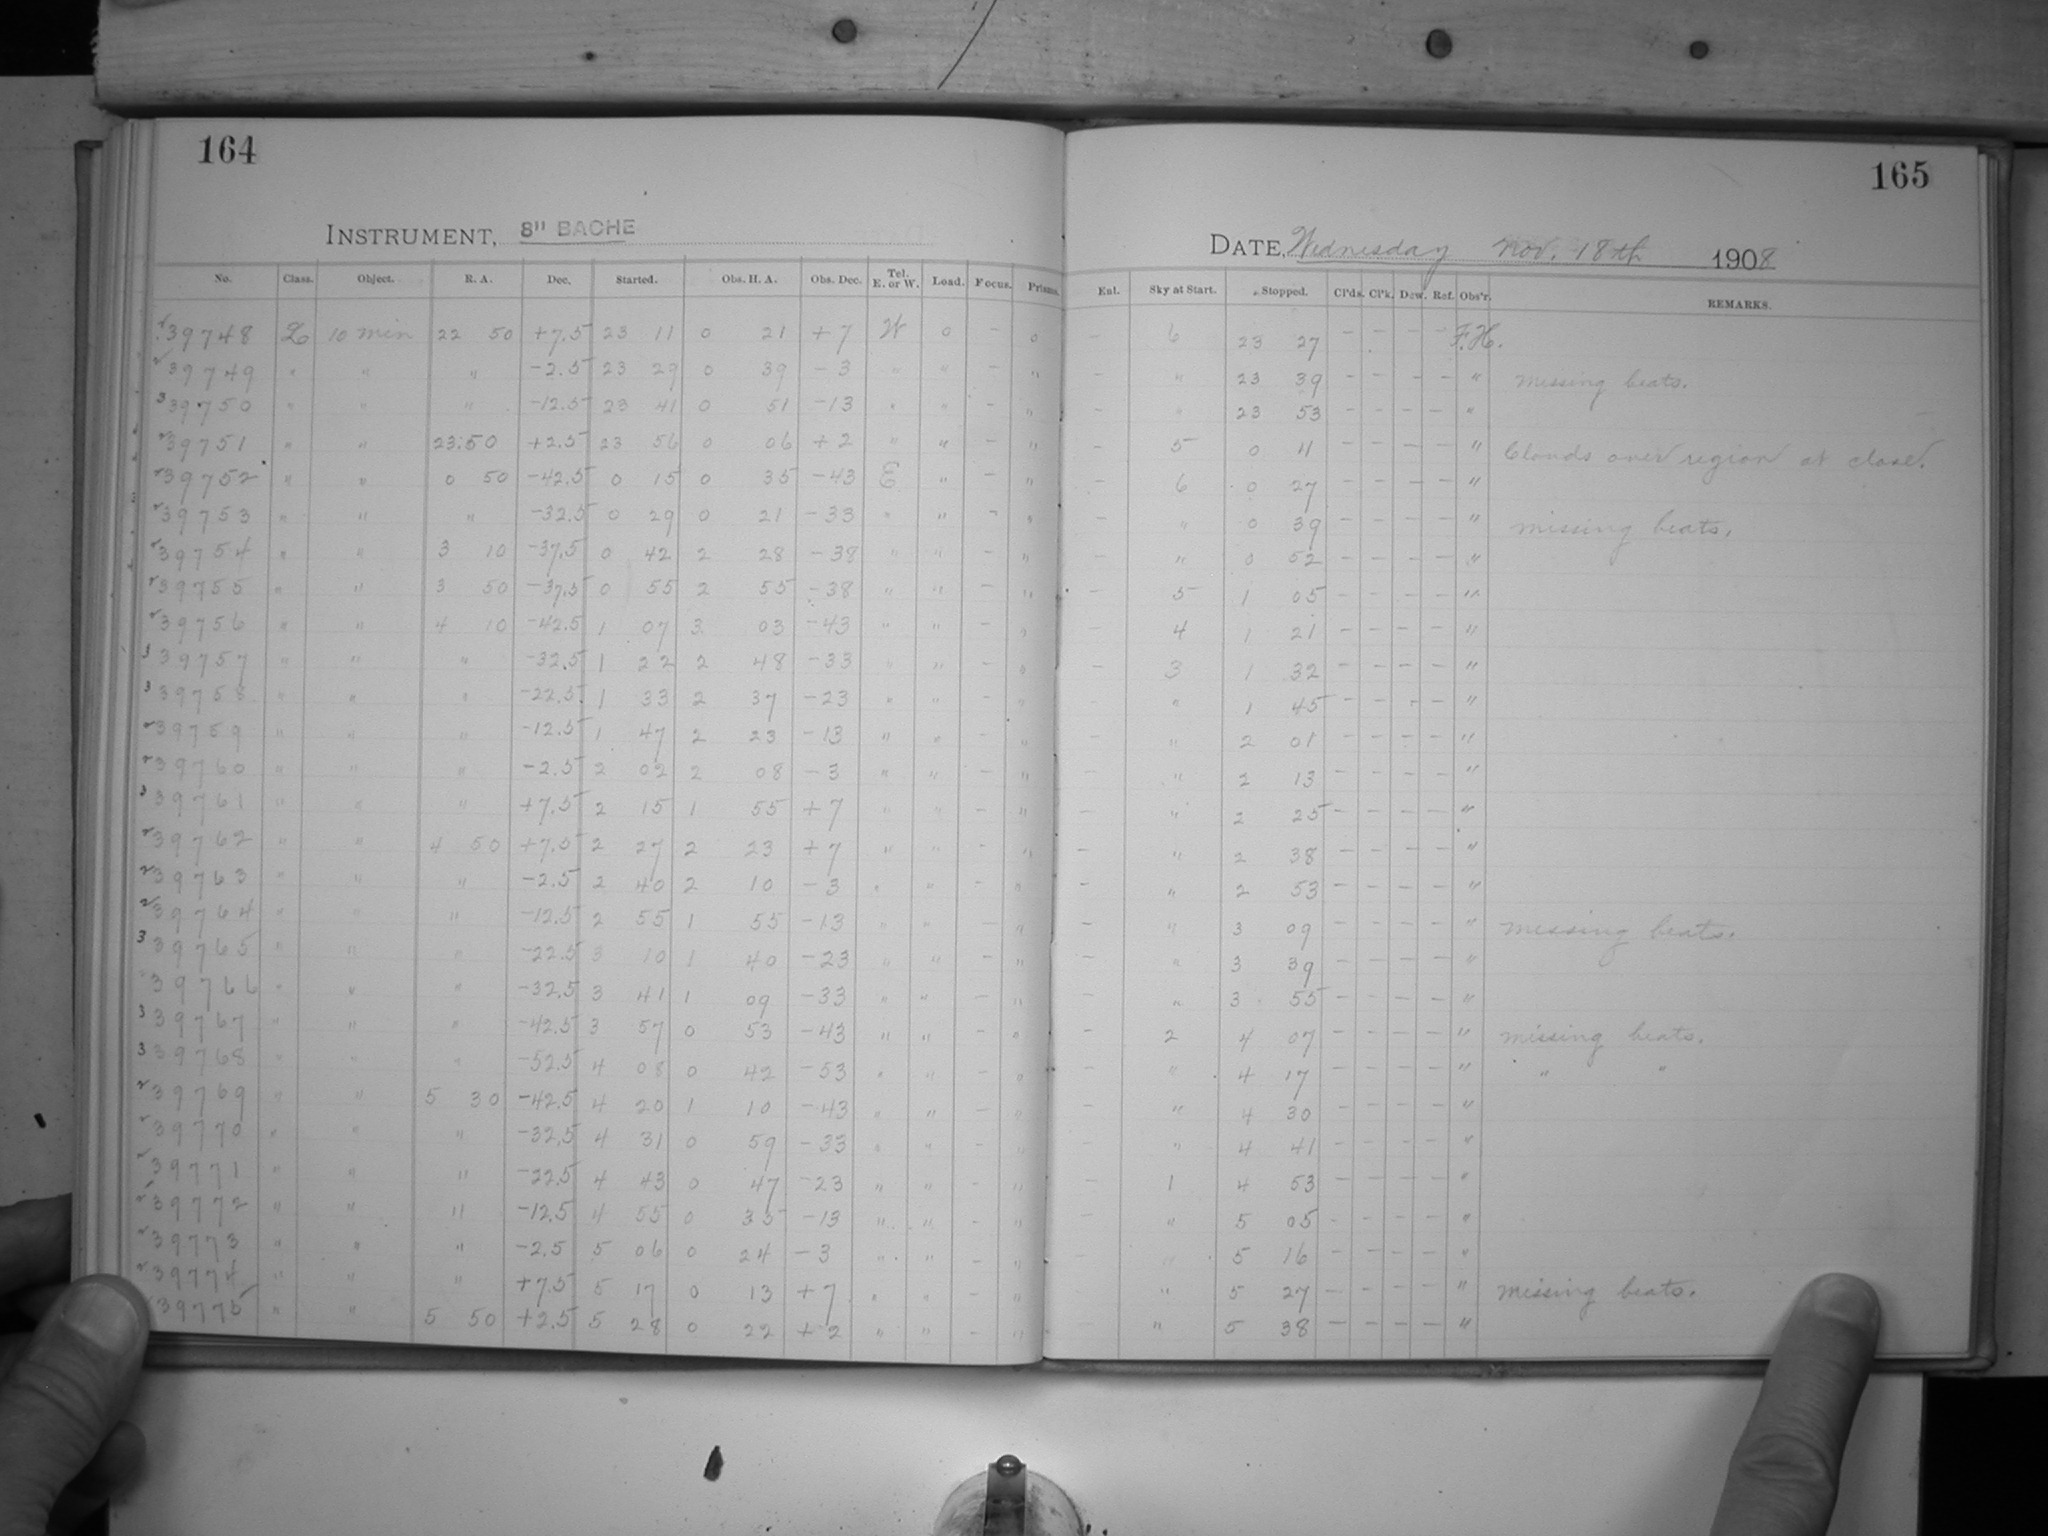 164
165
INSTRUMENT, 8" BACHE
DATE, Wednesday Nov. 18th 1908
No. Class. Object. R. A. Dec. Started. Obs. H. A. Obs. Dec. Tel. E. or W. Load. Focus. Prisms. Enl. Sky at Start. Stopped. Cl'ds. Cl'k. Dew. Ref. Obs'r. REMARKS.
39748 L 10 min 22 50 +7.5 23 11 0 21 +7 W 0 – 0 – 6 23 27 – – – – F.H.
39749 " " " -2.5 23 29 0 39 -3 " " – " – " 23 39 – – – – " missing beats.
39750 " " " -12.5 23 41 0 51 -13 " " – " – " 23 53 – – – – "
39751 " " 23:50 +2.5 23 56 0 06 +2 " " – " – 5 0 11 – – – – " Clouds over region at close.
39752 " " 0 50 -42.5 0 15 0 35 -43 E " – " – 6 0 27 – – – – "
39753 " " " -32.5 0 29 0 21 -33 " " – " – " 0 39 – – – – " missing beats.
39754 " " 3 10 -37.5 0 42 2 28 -38 " " – " – " 0 52 – – – – "
39755 " " 3 50 -37.5 0 55 2 55 -38 " " – " – 5 1 05 – – – – "
39756 " " 4 10 -42.5 1 07 3 03 -43 " " – " – 4 1 21 – – – – "
39757 " " " -32.5 1 22 2 48 -33 " " – " – 3 1 32 – – – – "
39758 " " " -22.5 1 33 2 37 -23 " " – " – " 1 45 – – – – "
39759 " " " -12.5 1 47 2 23 -13 " " – " – " 2 01 – – – – "
39760 " " " -2.5 2 02 2 08 -3 " " – " – " 2 13 – – – – "
39761 " " " +7.5 2 15 1 55 +7 " " – " – " 2 25 – – – – "
39762 " " 4 50 +7.5 2 27 2 23 +7 " " – " – " 2 38 – – – – "
39763 " " " -2.5 2 40 2 10 -3 " " – " – " 2 53 – – – – "
39764 " " " -12.5 2 55 1 55 -13 " " – " – " 3 09 – – – – " missing beats.
39765 " " " -22.5 3 10 1 40 -23 " " – " – " 3 39 – – – – "
39766 " " " -32.5 3 41 1 09 -33 " " – " – " 3 55 – – – – "
39767 " " " -42.5 3 57 0 53 -43 " " – " – 2 4 07 – – – – " missing beats.
39768 " " " -52.5 4 08 0 42 -53 " " – " – " 4 17 – – – – " " "
39769 " " 5 30 -42.5 4 20 1 10 -43 " " – " – " 4 30 – – – – "
39770 " " " -32.5 4 31 0 59 -33 " " – " – " 4 41 – – – – "
39771 " " " -22.5 4 43 0 47 -23 " " – " – 1 4 53 – – – – "
39772 " " " -12.5 4 55 0 35 -13 " " – " – " 5 05 – – – – "
39773 " " " -2.5 5 06 0 24 -3 " " – " – " 5 16 – – – – "
39774 " " " +7.5 5 17 0 13 +7 " " – " – " 5 27 – – – – " missing beats.
39775 " " 5 50 +2.5 5 28 0 22 +2 " " – " – " 5 38 – – – – "